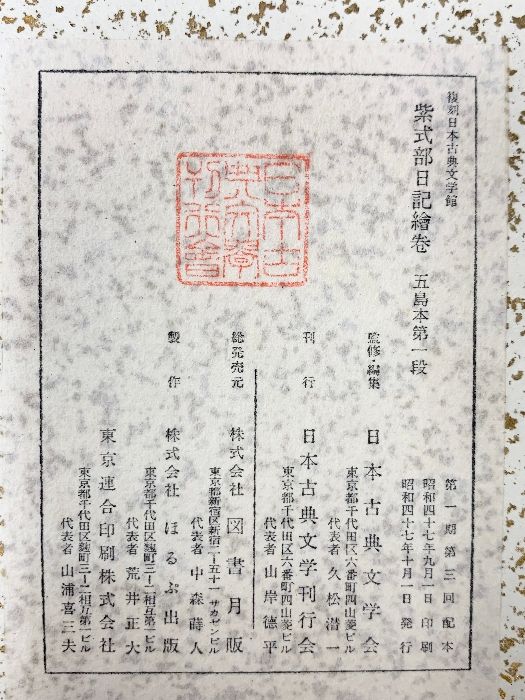 復刻日本古典文学館
紫式部日記繪巻 五島本第一段
第一期第三回配本
昭和四十七年九月一日印刷
昭和四十七年十月一日発行
監修・編集 日本古典文学会
東京都千代田区六番町四山菱ビル
代表者 久松潜一
刊行 日本古典文学刊行会
東京都千代田区六番町四山菱ビル
代表者 山岸徳平
総発売元 株式会社 図書月販
東京都新宿区新宿二ー五十一 サカゼンビル
代表者 中森蒔人
製作 株式会社 ほるぷ出版
東京都千代田区麹町三ー二相互第一ビル
代表者 荒井正大
東京連合印刷株式会社
東京都千代田区麹町三ー二相互第一ビル
代表者 山浦喜三夫
日本古
典文学
刊行会